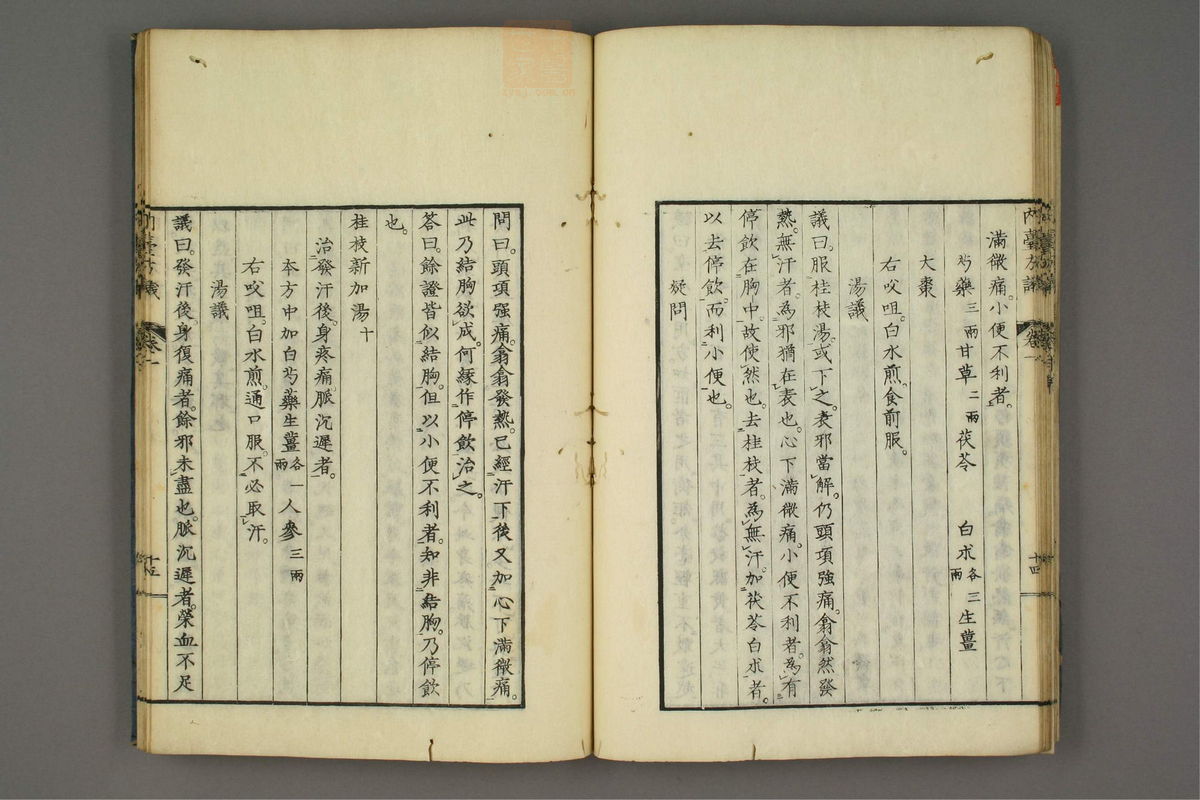 滿微痛。小便不利者。
芍藥三兩甘草二兩茯苓 白朮各三兩生薑
大棗
右㕮咀。白水煎。食前服。
湯議
議曰。服桂枝湯。或下之。表邪當解。仍頭項強痛。翕翕然發
熱。無汗者。為邪猶在表也。心下滿微痛。小便不利者。為有
停飲在胸中。故使然也。去桂枝者。為無汗。加茯苓白朮者。
以去停飲。而利小便也。
疑問
問曰。頭項强痛。翕翕發熱。已經汗下後又加心下滿微痛。
此乃結胸欲成。何緣作停飲治之。
答曰。餘證皆似結胸。但以小便不利者。知非結胸。乃停飲
也。
桂枝新加湯十
治發汗後。身疼痛。脈沉遲者。
本方中加白芍藥生薑各一兩人參三兩
右㕮咀。白水煎。通口服。不必取汗。
湯議
議曰。發汗後。身復痛者。餘邪未盡也。脈沉遲者。榮血不足